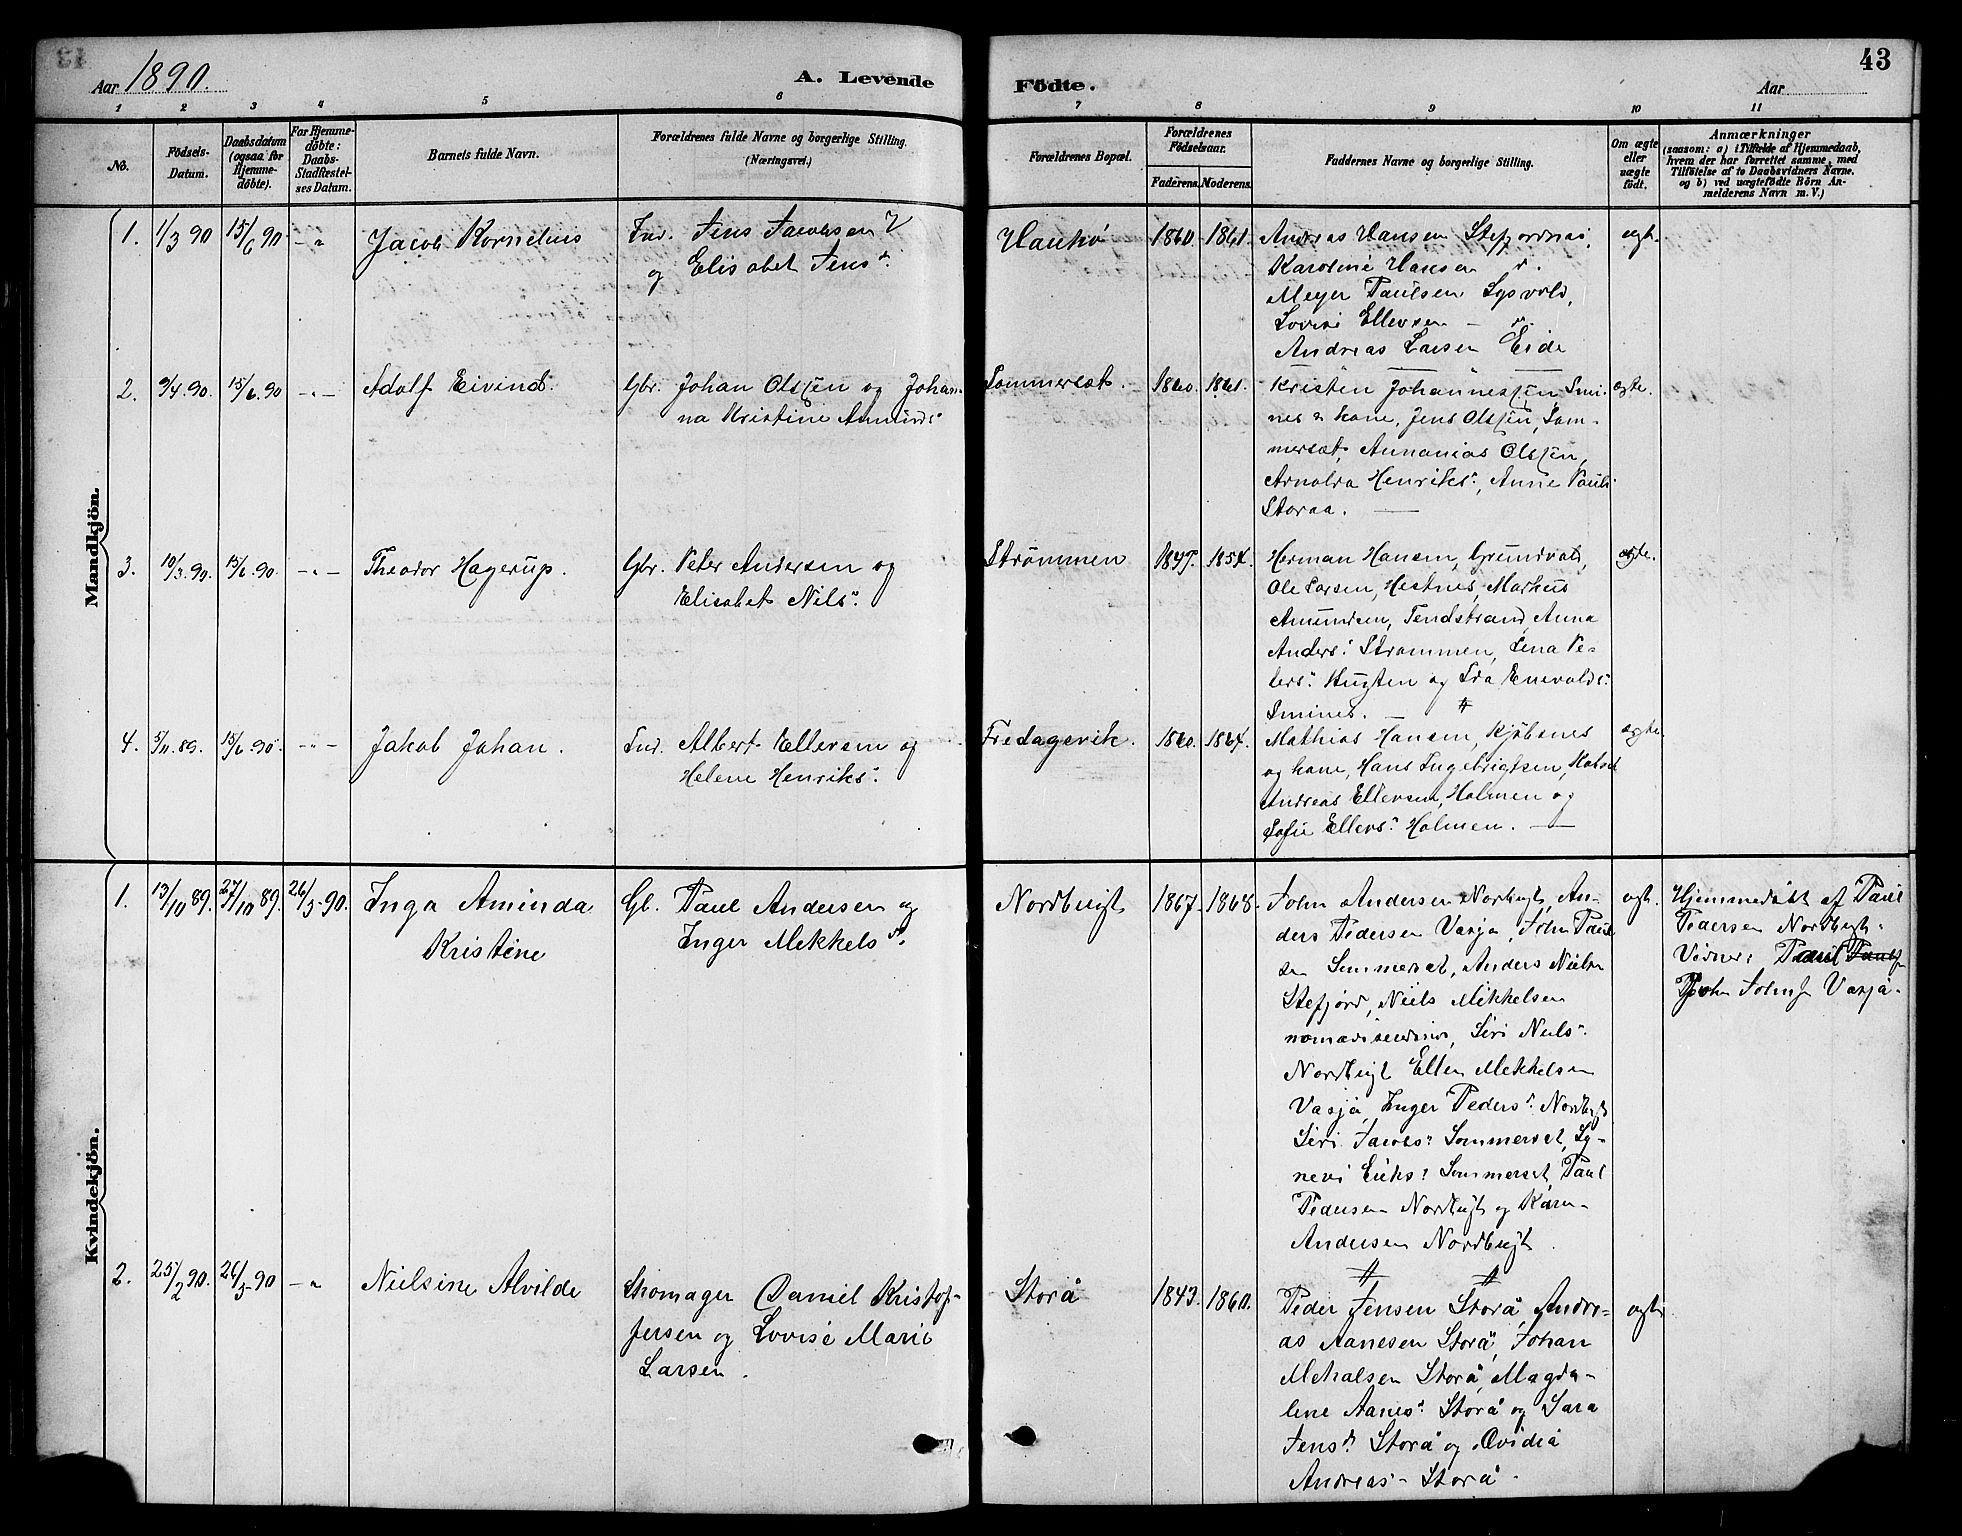 Aar 1890.
A. Levende
Fødte.
Aar
43
1 2 3 4 5 6 7 8 9 10 11
No.
Födsels-Datum.
Daabsdatum (ogsaa for Hjemmedöbte).
For Hjemmedöbte: Daabs-Stadfæstelses Datum.
Barnets fulde Navn.
Forældrenes fulde Navne og borgerlige Stilling. (Næringsvei.)
Forældrenes Bopæl.
Forældrenes Födselsaar.
Faderens. Moderens.
Faddernes Navne og borgerlige Stilling.
Om ægte eller uægte födt.
Anmærkninger
(saasom: a) i Tilfælde af Hjemmedaab,
hvem der har forrettet samme, med
Tilföielse af to Daabsvidners Navne.
og b) ved uægtefödte Börn An-
melderens Navn m. V.)
Mandkjön.
1. 1/3 90 15/6 90 -"- Jacob Kornelius
Ind. Jens Jacobsen
og Elisabet Jens
1860. 1861.
Andreas Hansen Stefjordnes,
Karoline Hansen
Meyer Paulsen Lysvold,
Lovise Ellevsen — "
Andreas Larsen Eide
ægt.
2. 9/4.90. 15/6.90 -"- Adolf Eivind.
Gbr. Johan Olsen og Johan-
na Kristine Amunds:
Sommersæt. 1860. 1861.
Kristen Johannessen, Smi-
nes & kone, Jens Olsen, Som-
mersæt, Annanias Olsen,
Arnolda Henriks:, Anne Pauls:
Storaa. —
ægte.
3. 10/3.90. 15/6.90. -"- Theodor Hagerup.
Gbr. Peter Andersen og
Elisabet Nils:
Strømmen 1847. 1854.
Herman Hansen, Grundvad,
Ole Larsen, Hestnes, Markus
Amundsen, Tendstrand, Anna
Anders: Strømmen, Lena Pe-
ters: og Ida Enevolds:
Smines. —
ægte.
4. 5/11.89. 15/6.90. -"- Jakob Johan.
Ind. Albert Ellevsen og
Helene Henriks:
Fredagsvik. 1860. 1864.
Mathias Hansen, Kjøbsnes
og kone, Hans Ingebrigtsen,
Andreas Ellevsen, Holmen og
Sofie Ellevs: Holmen. —
ægte.
Kvindekjön.
1. 13/10 89. 27/10 89. 26/5-90. Inga Aminda
Kristine
Gl. Paul Andersen og
Inger Mikkels
Nordbugt 1867. 1868.
John Andersen Nordbugt, An-
ders Pedersen Vasja, John Paul
sen Sommerset, Anders Nielsen
Stefjord, Niels Mikkelsen
nomadiserende, Siri Niels:
Nordbugt Ellen Mikkelsen
Vasja, Inger Peders: Nordbugt
Siri Jacobs: Sommerset, Sy-
nevi Eriks: Sommerset, Paul
Pedersen Nordbugt og Karen
Andersen Nordbugt
ægt.
Hjemmedøbt af Paul
Pedersen Nordbugt.
Vidner: Paul
John Johns Vasja.
2. 25/2 90. 26/5-90 -"- Nielsine Alvilde
Skomager Daniel Kristof-
fersen og Lovise Marie
Larsen.
Storå 1843. 1860.
Peder Jensen Storå, Andre-
as Aanesen Storå, Johan
Mikalsen Storå, Magda-
lene Aanes: Storå og Sara
Jens: Storå og Ovidia
Andreas- Storå.
ægt.